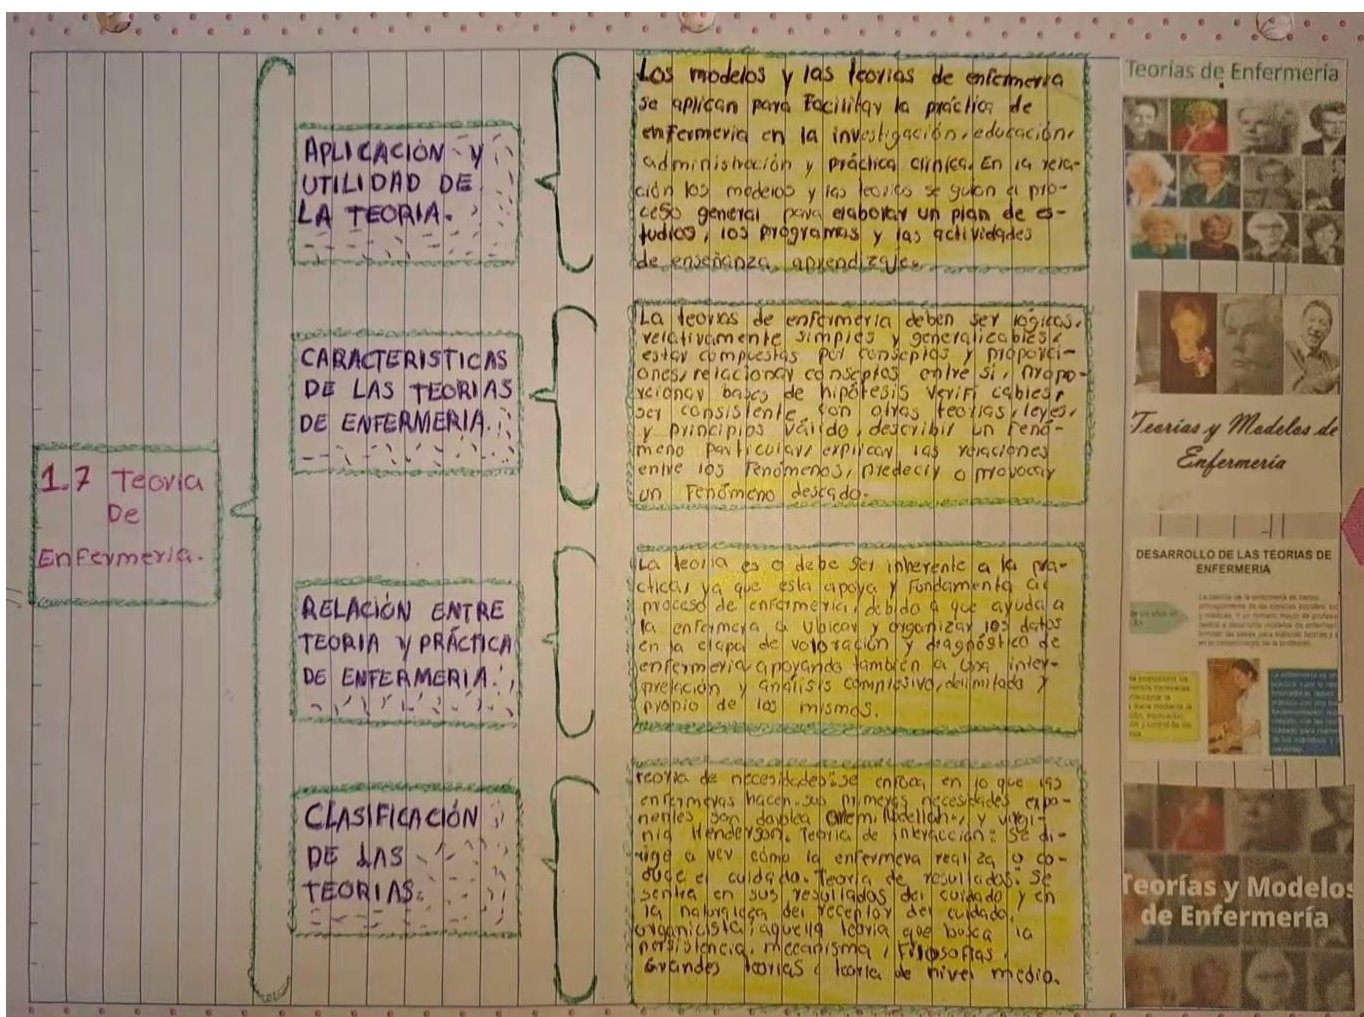 1.7 Teoria
De
Enfermeria.
APLICACIÓN Y
UTILIDAD DE
LA TEORIA.
Los modelos y las teorias de enfermeria
se aplican para Facilitar la práctica de
enfermeria en la investigación, educación,
administración y práctica clinica. En la rela-
ción los modelos y las teorias se guian el pro-
ceso general para elaborar un plan de es-
tudios, los programas y las actividades
de enseñanza, aprendizaje.
CARACTERISTICAS
DE LAS TEORIAS
DE ENFERMERIA.
La teorias de enfermeria deben ser lógicas,
relativamente simples y generalicables,
estar compuestas por conseptos y proporci-
ones, relacionar conseptos entre si, propo-
rcionar bases de hipótesis verificables,
ser consistente con otras teorias, leyes,
y principios válido, describir un fenó-
meno particular, explicar las relaciones
entre los Fenómenos, predecir o provocar
un Fenómeno deseado.
RELACIÓN ENTRE
TEORIA Y PRÁCTICA
DE ENFERMERIA.
La teoria es o debe ser inherente a la prá-
ctica, ya que esta apoya y Fundamenta al
proceso de enfermeria, debido a que ayuda a
la enfermera a Ubicar y organizar los datos
en la etapa de valoración y diagnóstico de
enfermeria, apoyando también a una inter-
pretación y análisis complesivo, delimitado y
propio de los mismos.
CLASIFICACIÓN
DE LAS
TEORIAS.
Teoria de necesidades: se enfoca en lo que las
enfermeras hacen. sus primeras necesidades expo-
nentes son Orem, y Virgi-
nia Henderson. Teoria de interacción: Se di-
rige a ver cómo la enfermera realiza o co-
duce el cuidado. Teoria de resultados: Se
sentra en sus resultados del cuidado y en
la naturaleza del receptor del cuidado,
organicista; aquella teoria que busca la
persistencia, mecanisma, Filosofias,
Grandes teorias, teoria de nivel medio.
Teorías de Enfermería
Teorías y Modelos de
Enfermería
DESARROLLO DE LAS TEORIAS DE
ENFERMERIA
Teorías y Modelos
de Enfermería